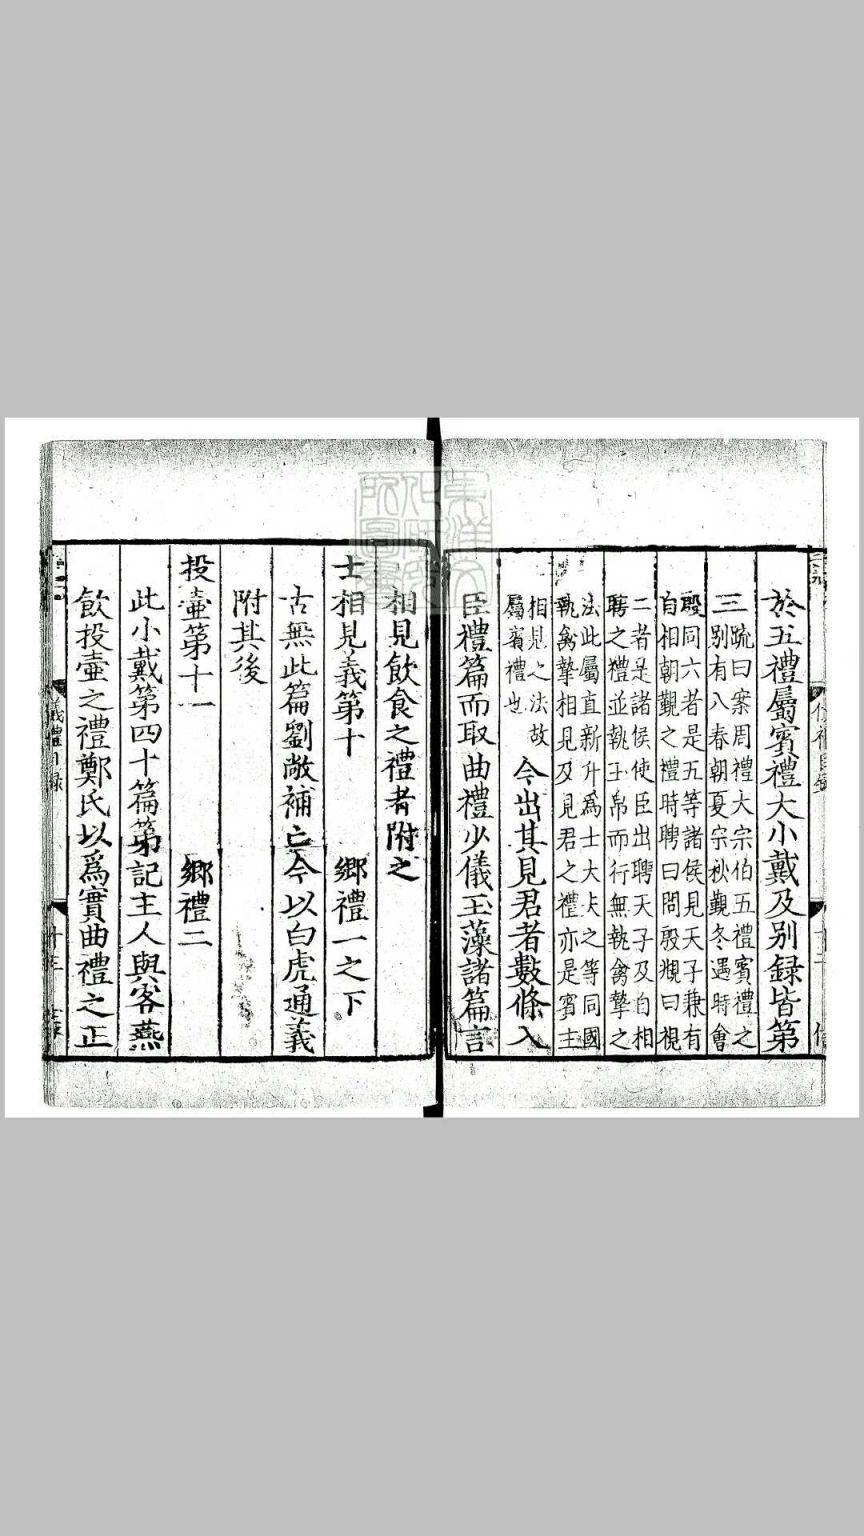 於五禮屬賓禮大小戴及別録皆第
三
疏曰案周禮大宗伯五禮賓禮之
别有八春朝夏宗秋覲冬遇時會
殷同六者是五等諸侯見天子兼有
自相朝覲之禮時聘曰問殷覜曰視
二者是諸侯使臣出聘天子及自相
聘之禮並執玉帛而行無執禽摯之
法此屬直新升爲士大夫之等同國
執禽摯相見及見君之禮亦是賓主
相見之法故
屬賓禮也
今出其見君者數條入
臣禮篇而取曲禮少儀玉藻諸篇言
相見飲食之禮者附之
士相見義第十 鄉禮一之下
古無此篇劉敞補亡今以白虎通義
附其後
投壷第十一 鄉禮二
此小戴第四十篇第記主人與客燕
飲投壷之禮鄭氏以爲實曲禮之正
儀禮目録
十三
東洋文化研究所圖書